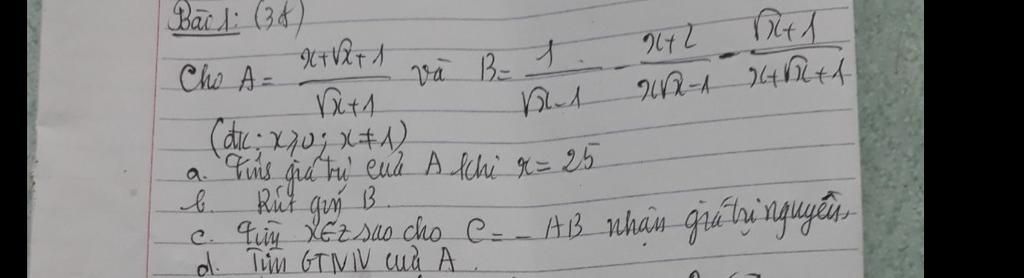 Bài 1: (3đ)
Cho A = (x+√x+1)/(√x+1) và B = 1/(√x-1) - (x+2)/(x√x-1) - (√x+1)/(x+√x+1)
(đk: x≥0; x≠1)
a. Tính giá trị của A khi x = 25
b. Rút gọn B.
c. Tìm x∈Z sao cho C = -AB nhận giá trị nguyên.
d. Tìm GTNN của A.